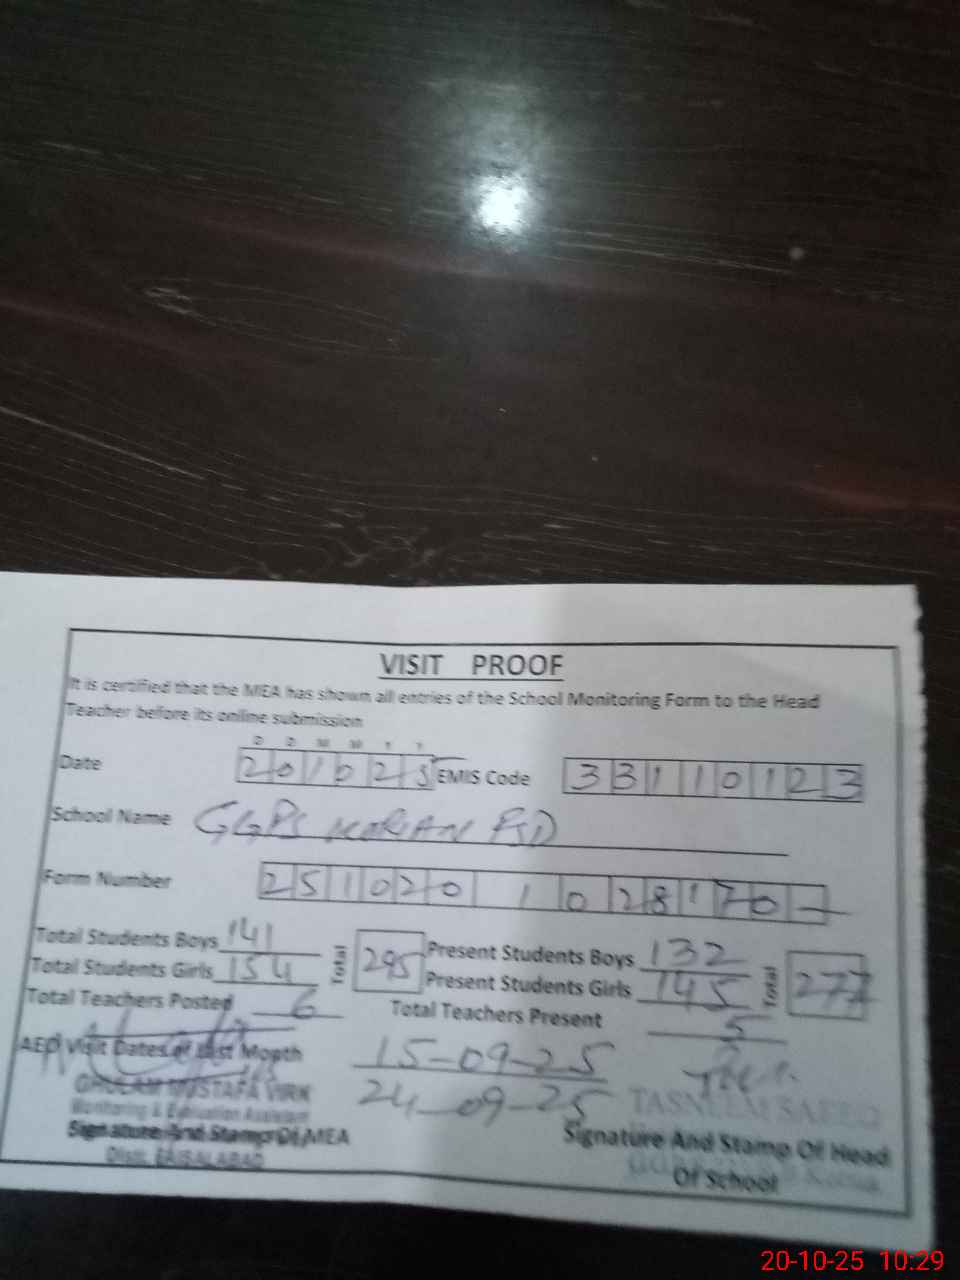 VISIT PROOF
It is certified that the MEA has shown all entries of the School Monitoring Form to the Head
Teacher before its online submission
D D M M Y Y
Date 2 0 1 0 2 5 EMIS Code 3 3 1 1 0 1 2 3
School Name GGPS FSD
Form Number 2 5 1 0 2 0 1 0 2 8 1 7 0
Total Students Boys 141 Total 295 Present Students Boys 132 Total 277
Total Students Girls 154 Present Students Girls 145
Total Teachers Posted 6 Total Teachers Present 5
AEO Visit Dates of Last Month 15-09-25
24-09-25
GHULAM MUSTAFA VIRK
Monitoring & Evaluation Assistant
TASNEEM SAEED
Signature And Stamp Of MEA
Signature And Stamp Of Head
Of School
Distt. FAISALABAD
20-10-25 10:29